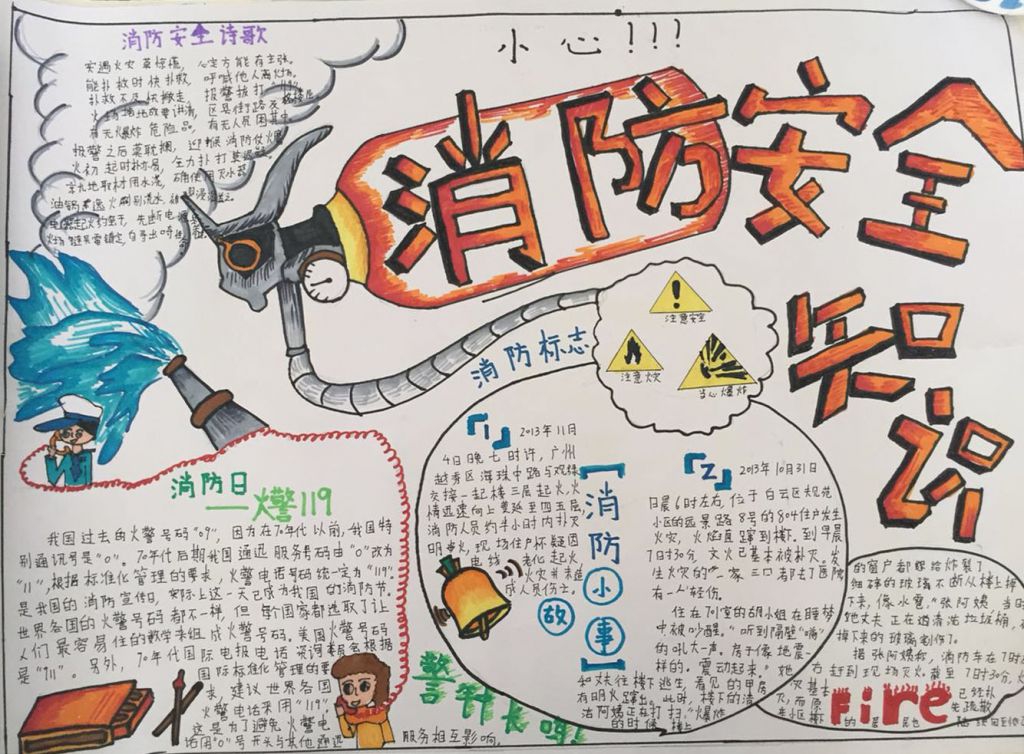 小心!!!
消防安全
知识
消防安全诗歌
实遇火灾莫惊慌，
能扑救时快扑救，呼喊他人离火场。
扑救不及快撤走，报警拨打"119"
有无爆炸危险品，有无人员困其中
报警之后莫耽搁，迎候消防仗火
火初起时扑易，全力扑打莫迟疑
消防标志
注意安全
注意火灾
当心爆炸
消防日
—火警119
我国过去的火警号码"09"，因为在70年代以前，我国特
别通讯号是"0"。70年代后期我国通远服务号码由"0"改为
"11"，根据标准化管理的要求，火警电话号码统一定为"119"
是我国的消防宣传日，实际上这一天已成为我国的消防节。
世界各国的火警号码都不一样，但每个国家都选取了让
人们最容易住的数学来组成火警号码。美国火警号码
是"911"。另外，70年代国际电报电话咨询委员会根据
国际标准化管理的要
求，建议世界各国
火警电话采用"119"，
这是为了避免火警电
话用"0"号开头与其他通远
服务相互影响。
警钟长鸣!
[消防小事故]
「1」2013年11月
4日晚七时许，广州
越秀区海珠中路与观绿
交接一起楼三层起火，火
情迅速向上蔓延至四五层，
消防人员约半小时内扑灭
明火，现场住户怀疑因
电线老化起火，
火灾并未造
成人员伤亡。
「2」2013年10月31日
日晨6时左右，位于白云区规范
小区的远景路8号的804住户发生
火灾，火焰直蹿到楼下。到早晨
7时30分，大火已基本被扑灭，发
生火灾的一家三口都去了医院
有一人轻伤。
住在701室的胡小姐在睡梦
中被吵醒。"听到隔壁"嗡"
的吼大声。房子像地震一
样的。震动起来。"她
和丈夫往楼下逃生，看见的甲房
有明火蹿出。此时，楼下的清
洁阿姨正在打扫，"爆炸
的时候，楼上
的窗户都被给炸裂了，
细碎的玻璃不断从楼上掉
下来，像水雹。"张阿姨当时
她丈夫正在边清洁垃圾桶，被
掉下来的玻璃割伤了。
据张阿姨称，消防车在7时左
右赶到现场灭火。截至7时30分，火
fire